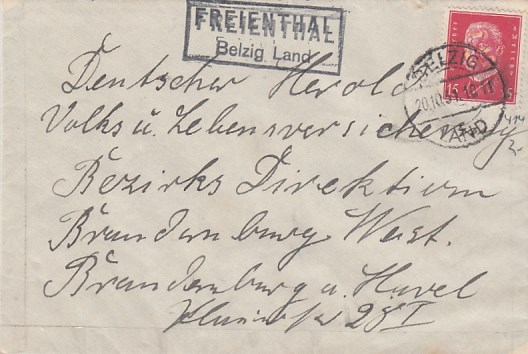 FREIENTHAL
Belzig Land
BELZIG
20.10.
LAND
15
Deutscher Herold
Volks u. Lebensversicherung
Bezirks Direktion
Brandenburg West.
Brandenburg a. Havel
28 I